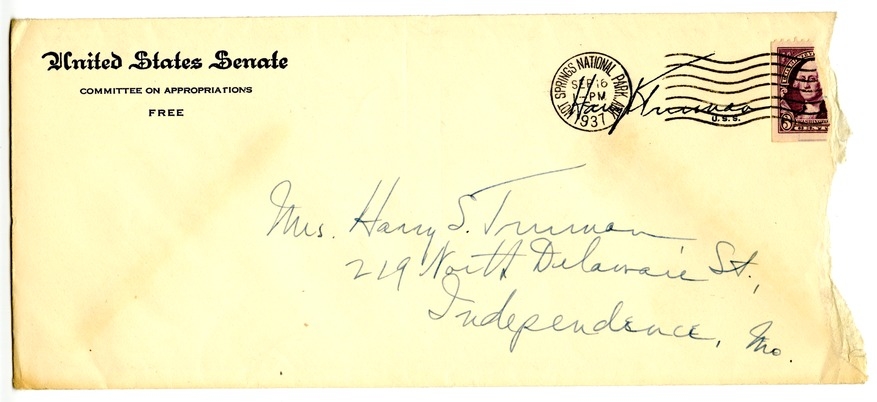 United States Senate
COMMITTEE ON APPROPRIATIONS
FREE
HOT SPRINGS NATIONAL PARK, ARK.
SEP 16
PM
1937
Harry S Truman
U.S.S.
3 CENTS
Mrs. Harry S. Truman
219 North Delaware St.,
Independence, Mo.